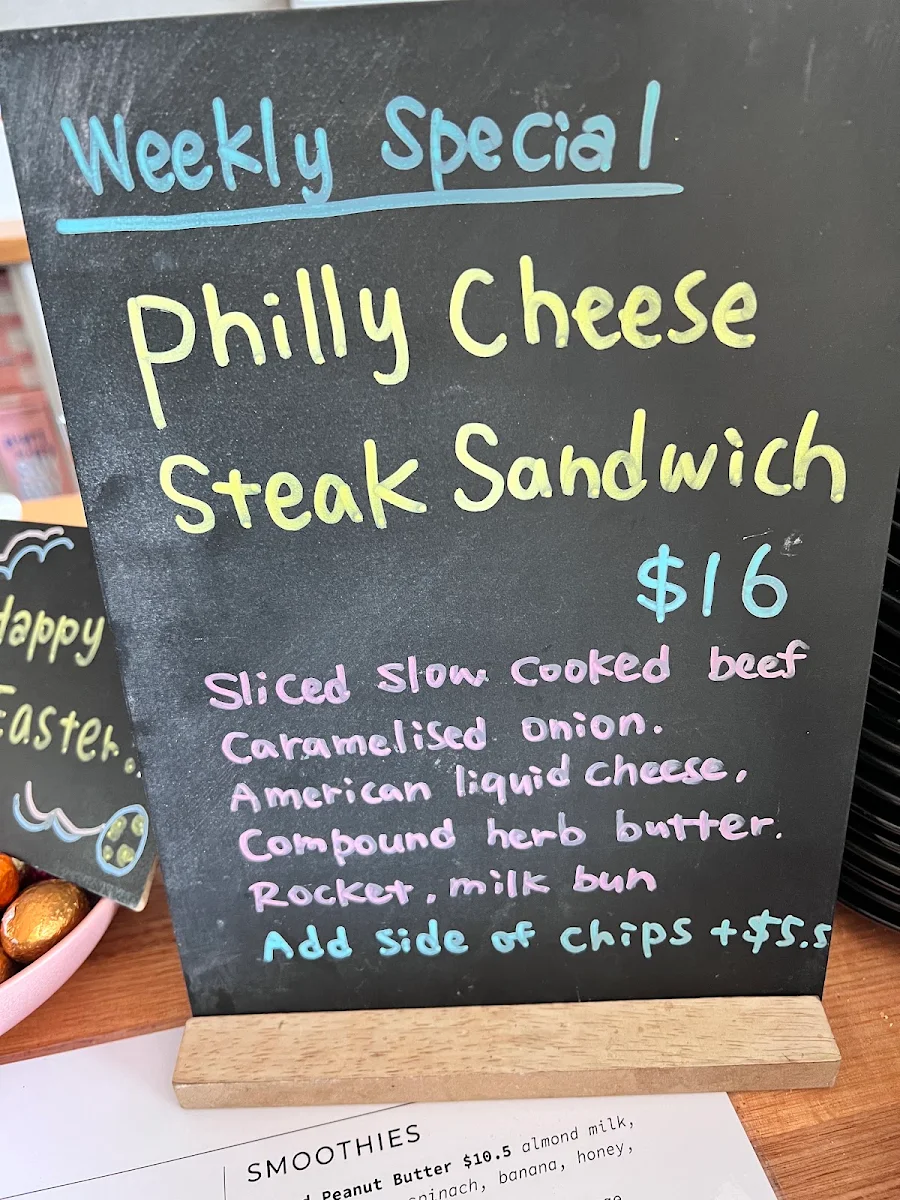 Weekly Special
Philly Cheese
Steak Sandwich
$16
Sliced Slow Cooked beef
Caramelised onion.
American liquid cheese,
Compound herb butter.
Rocket, milk bun
Add side of chips +$5.5
Happy
Easter.
SMOOTHIES
Peanut Butter $10.5 almond milk,
spinach, banana, honey,